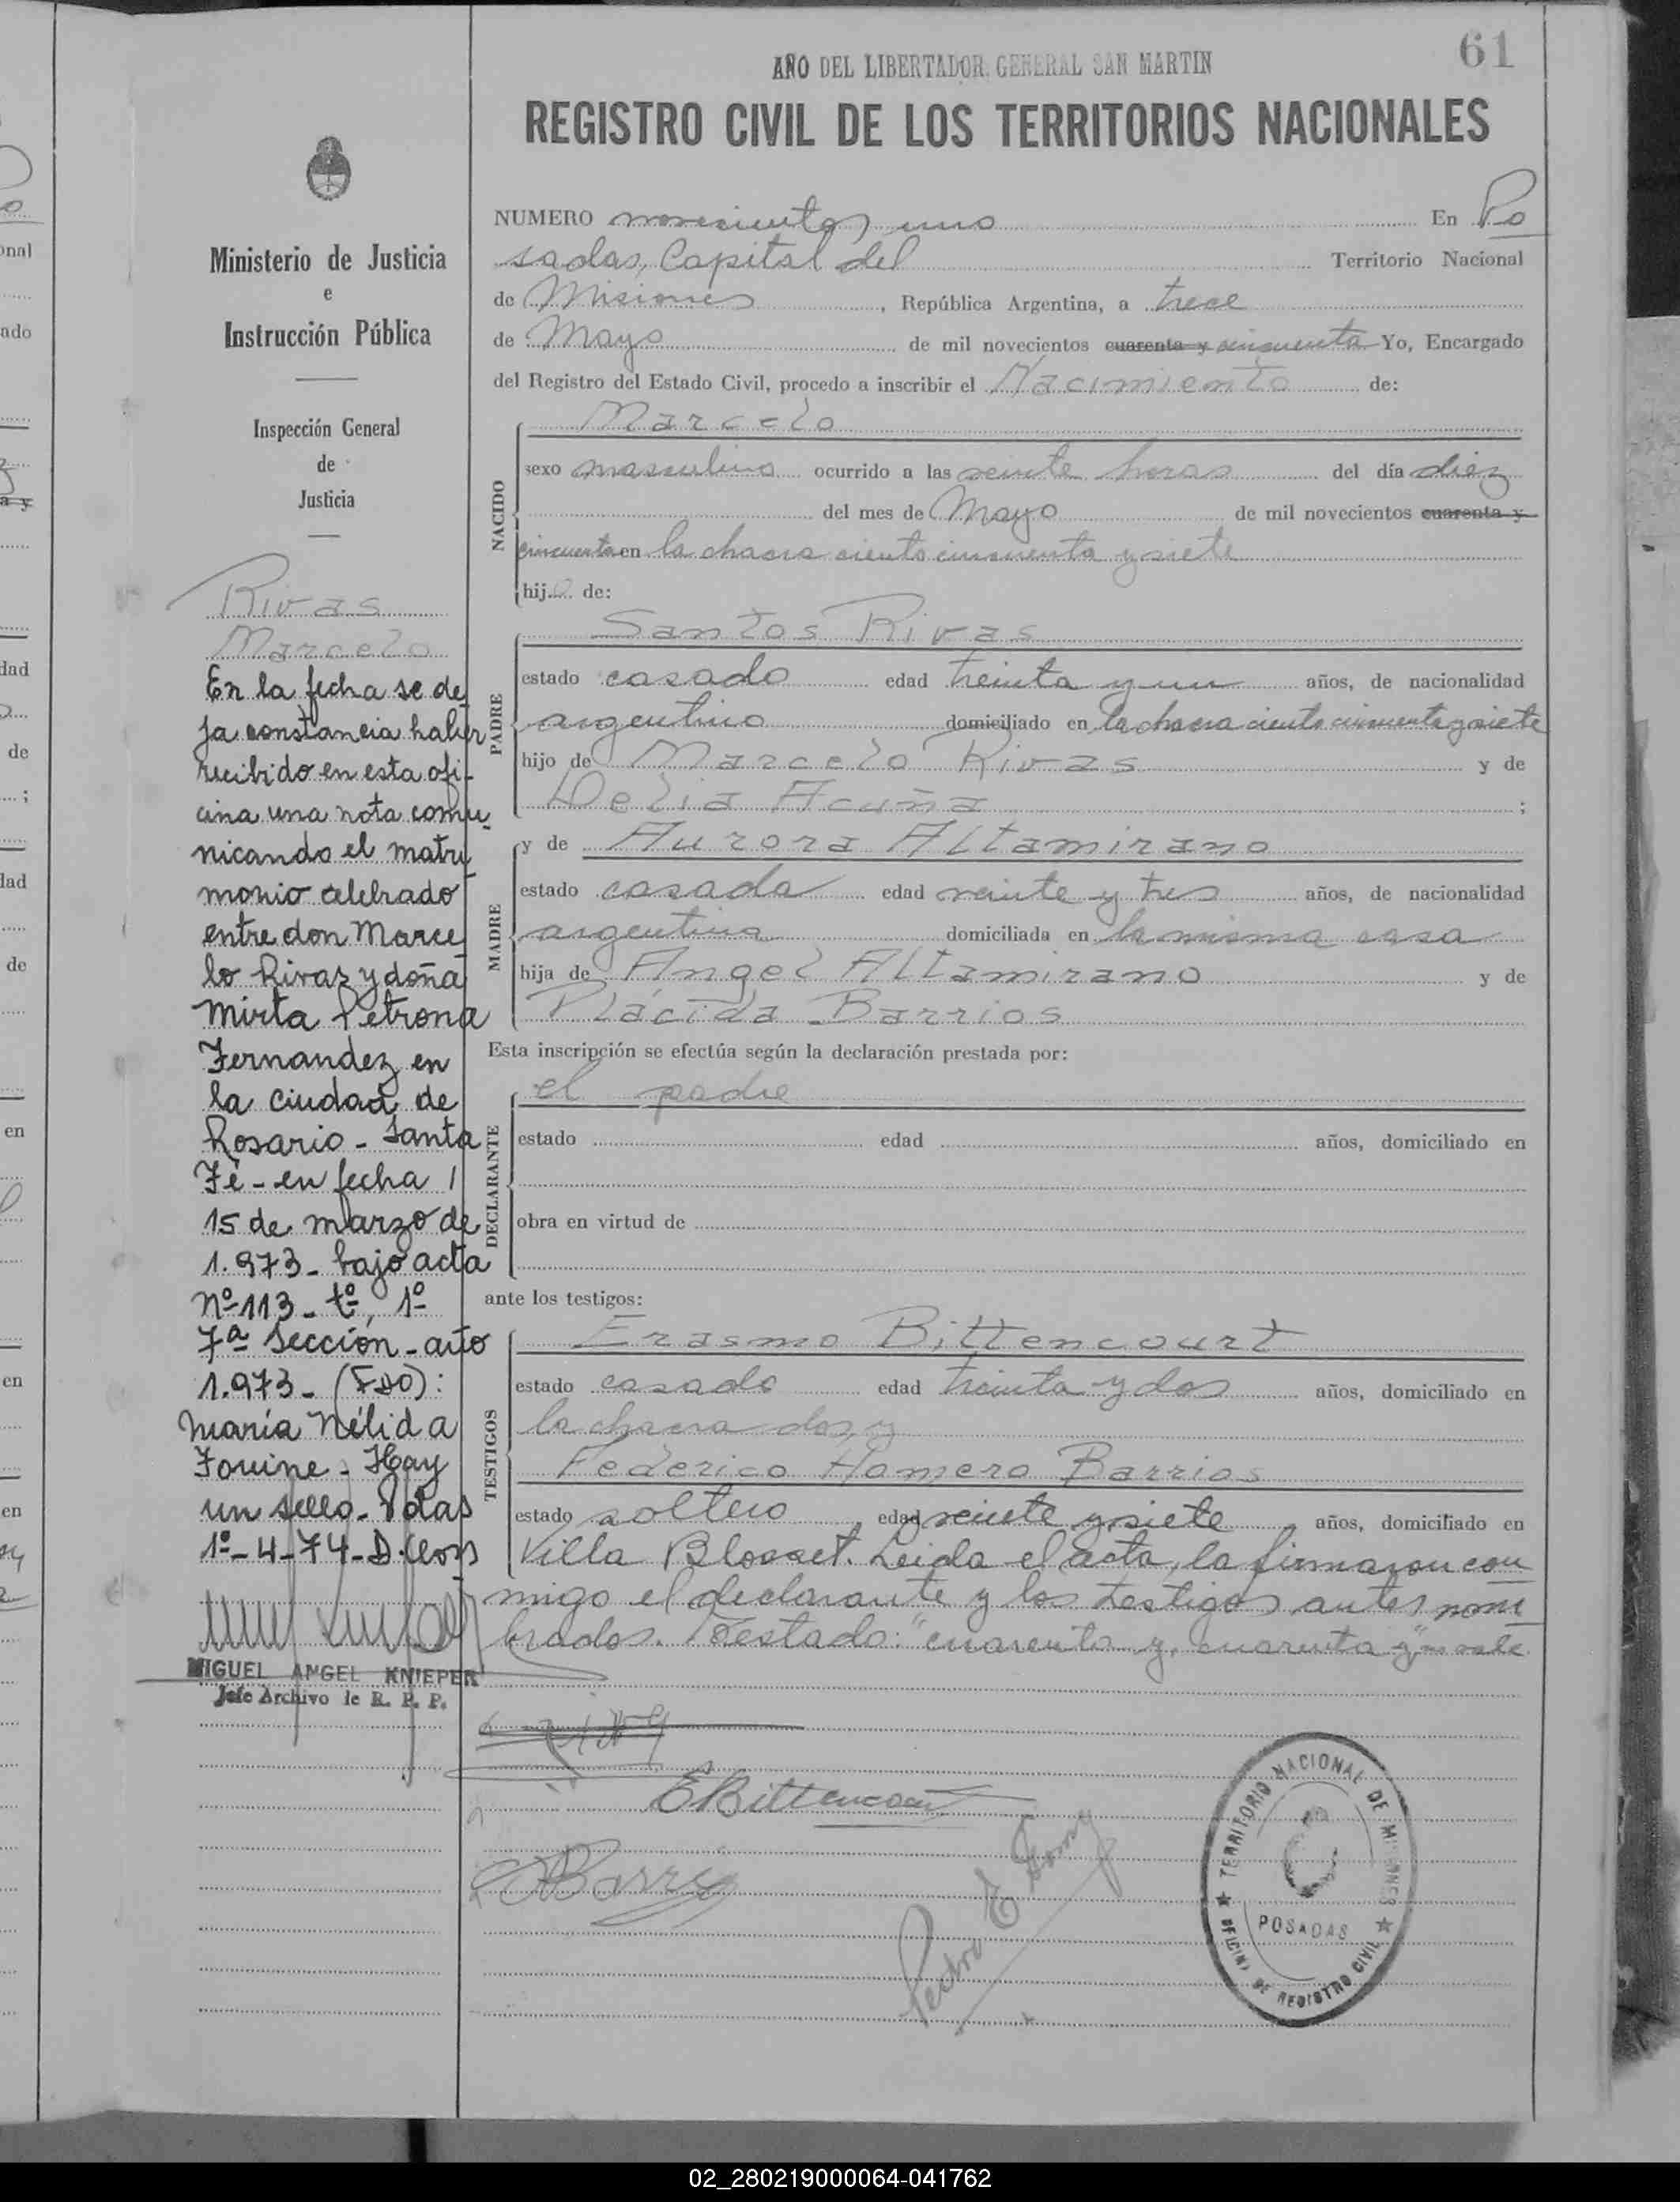 AÑO DEL LIBERTADOR GENERAL SAN MARTIN
61
REGISTRO CIVIL DE LOS TERRITORIOS NACIONALES
Ministerio de Justicia
e
Instrucción Pública
Inspección General
de
Justicia
Rivas
Marcelo
En la fecha se de
ja constancia haber
recibido en esta ofi-
cina una nota comu-
nicando el matri
monio celebrado
entre don Marce
lo Rivas y doña
Mirta Petrona
Fernandez en
la ciudad de
Rosario - Santa
Fé - en fecha
15 de marzo de
1.973 - bajo acta
nº 113 - tº, 1º
7ª Sección - año
1.973 - (FDO):
María Nélida
Hay
un sello - Pdas
1º-4-74-
MIGUEL ANGEL KNIEPER
Jefe Archivo de R. P. P.
NUMERO novecientos uno En Po
sadas, Capital del Territorio Nacional
de Misiones, República Argentina, a trece
de Mayo de mil novecientos cuarenta y cincuenta Yo, Encargado
del Registro del Estado Civil, procedo a inscribir el Nacimiento de:
NACIDO
Marcelo
sexo masculino ocurrido a las veinte horas del día diez
del mes de Mayo de mil novecientos cuarenta y
cincuenta en la chacra ciento cincuenta y siete
hijo de:
PADRE
Santos Rivas
estado casado edad treinta y un años, de nacionalidad
argentino domiciliado en la chacra ciento cincuenta y siete
hijo de Marcelo Rivas y de
Delia Acuña ;
MADRE
y de Aurora Altamirano
estado casada edad veinte y tres años, de nacionalidad
argentina domiciliada en la misma casa
hija de Angel Altamirano y de
Plácida Barrios
Esta inscripción se efectúa según la declaración prestada por:
DECLARANTE
el padre
estado edad años, domiciliado en
obra en virtud de
ante los testigos:
TESTIGOS
Erasmo Bittencourt
estado casado edad treinta y dos años, domiciliado en
la chacra dos, y
Federico Homero Barrios
estado soltero, edad veinte y siete, años, domiciliado en
Villa Blosset. Leida el acta, la firmaron con
migo el declarante y los testigos antes nom
brados. Testado: "cuarenta y, cuarenta y" no vale
EBittencourt
Barrios
Pedro E
TERRITORIO NACIONAL DE MISIONES
POSADAS
OFICINA DE REGISTRO CIVIL
onal
ado
a y
dad
de
;
dad
de
en
en
en
02_280219000064-041762